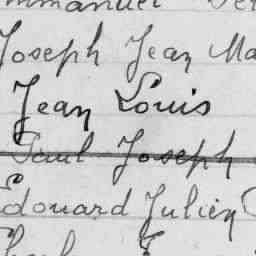 mmanuel
Joseph Jean Ma
Jean Louis
Paul Joseph
Edouard Julien